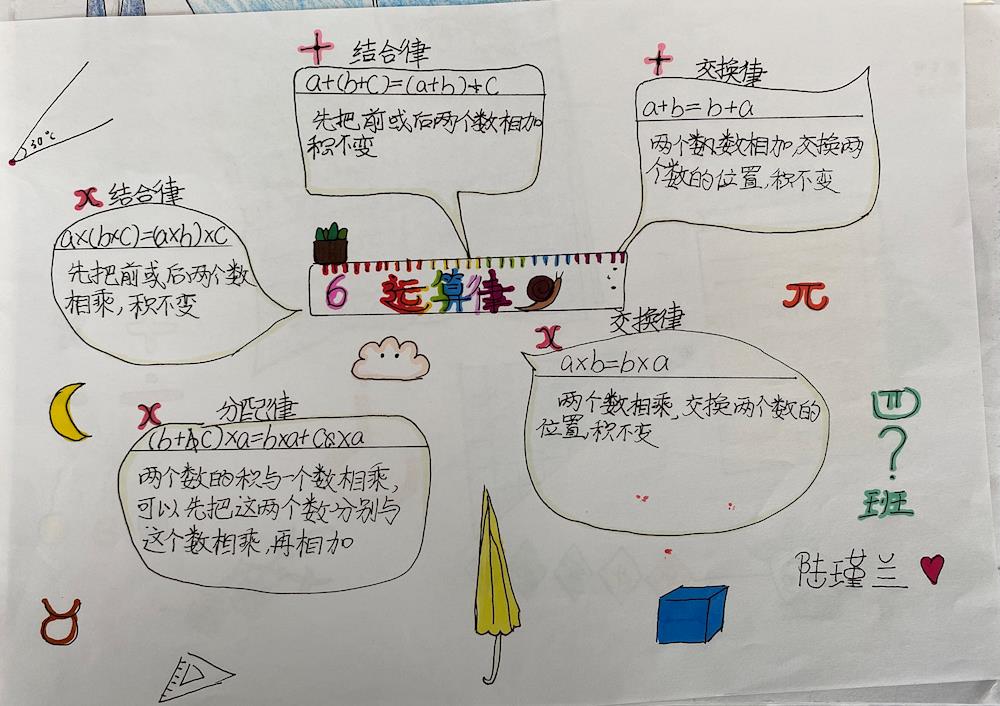 + 结合律
a+(b+c)=(a+b)+c
先把前或后两个数相加
积不变
+ 交换律
a+b=b+a
两个数数相加,交换两
个数的位置,积不变
30°C
x 结合律
a×(b×c)=(a×b)×c
先把前或后两个数
相乘,积不变
6 运算律
π
x 交换律
a×b=b×a
两个数相乘,交换两个数的
位置,积不变
x 分配律
(b+c)×a=b×a+c×a
两个数的积与一个数相乘,
可以先把这两个数分别与
这个数相乘,再相加
四
?
班
陆瑾兰